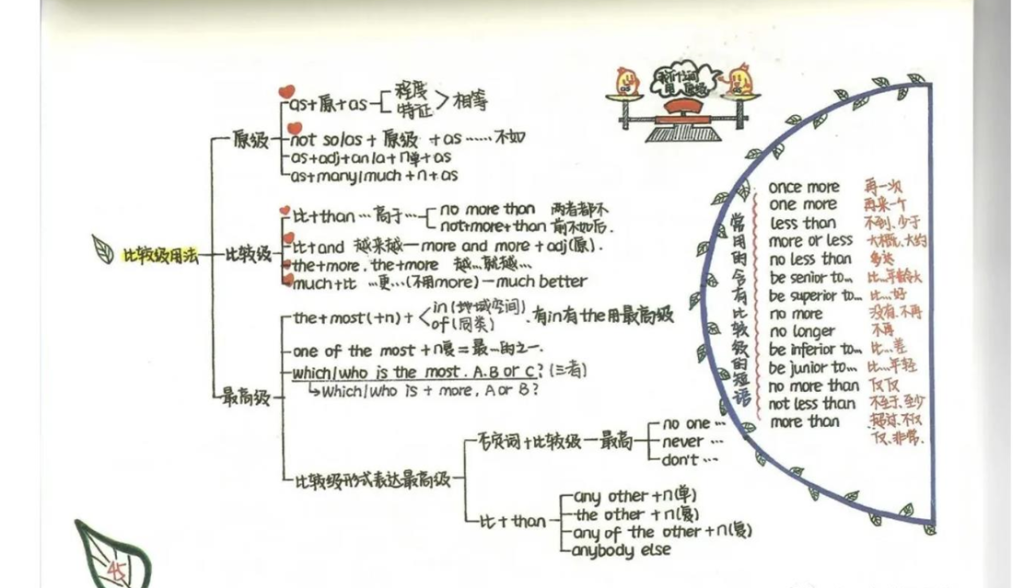 比较级用法
原级
as+原+as
程度
特征
相等
not so/as + 原级 +as ……不如
as+adj+an/a+n单+as
as+many/much+n+as
比较级
比+than … 高于…
no more than 两者都不
not+more+than 前不如后.
比+and 越来越—more and more+adj(原).
the+more, the+more 越…就越…
much+比 …更…(不用more)—much better
最高级
the+most(+n)+
in(地域空间)
of(同类)
.有in有the用最高级
one of the most +n复=最…的之一.
which/who is the most, A.B or C? (三者)
Which/who is + more, A or B?
比较级形式表达最高级
否定词+比较级—最高
no one …
never …
don't …
比+than
any other +n(单)
the other +n(复)
any of the other +n(复)
anybody else
常用的含有比较级的短语
once more 再一次
one more 再来一个
less than 不到、少于
more or less 大概、大约
no less than 多达
be senior to… 比…年龄大
be superior to… 比…好
no more 没有、不再
no longer 不再
be inferior to… 比…差
be junior to… 比…年轻
no more than 仅仅
not less than 不至于、至少
more than 超过、不仅
仅、非常.
45